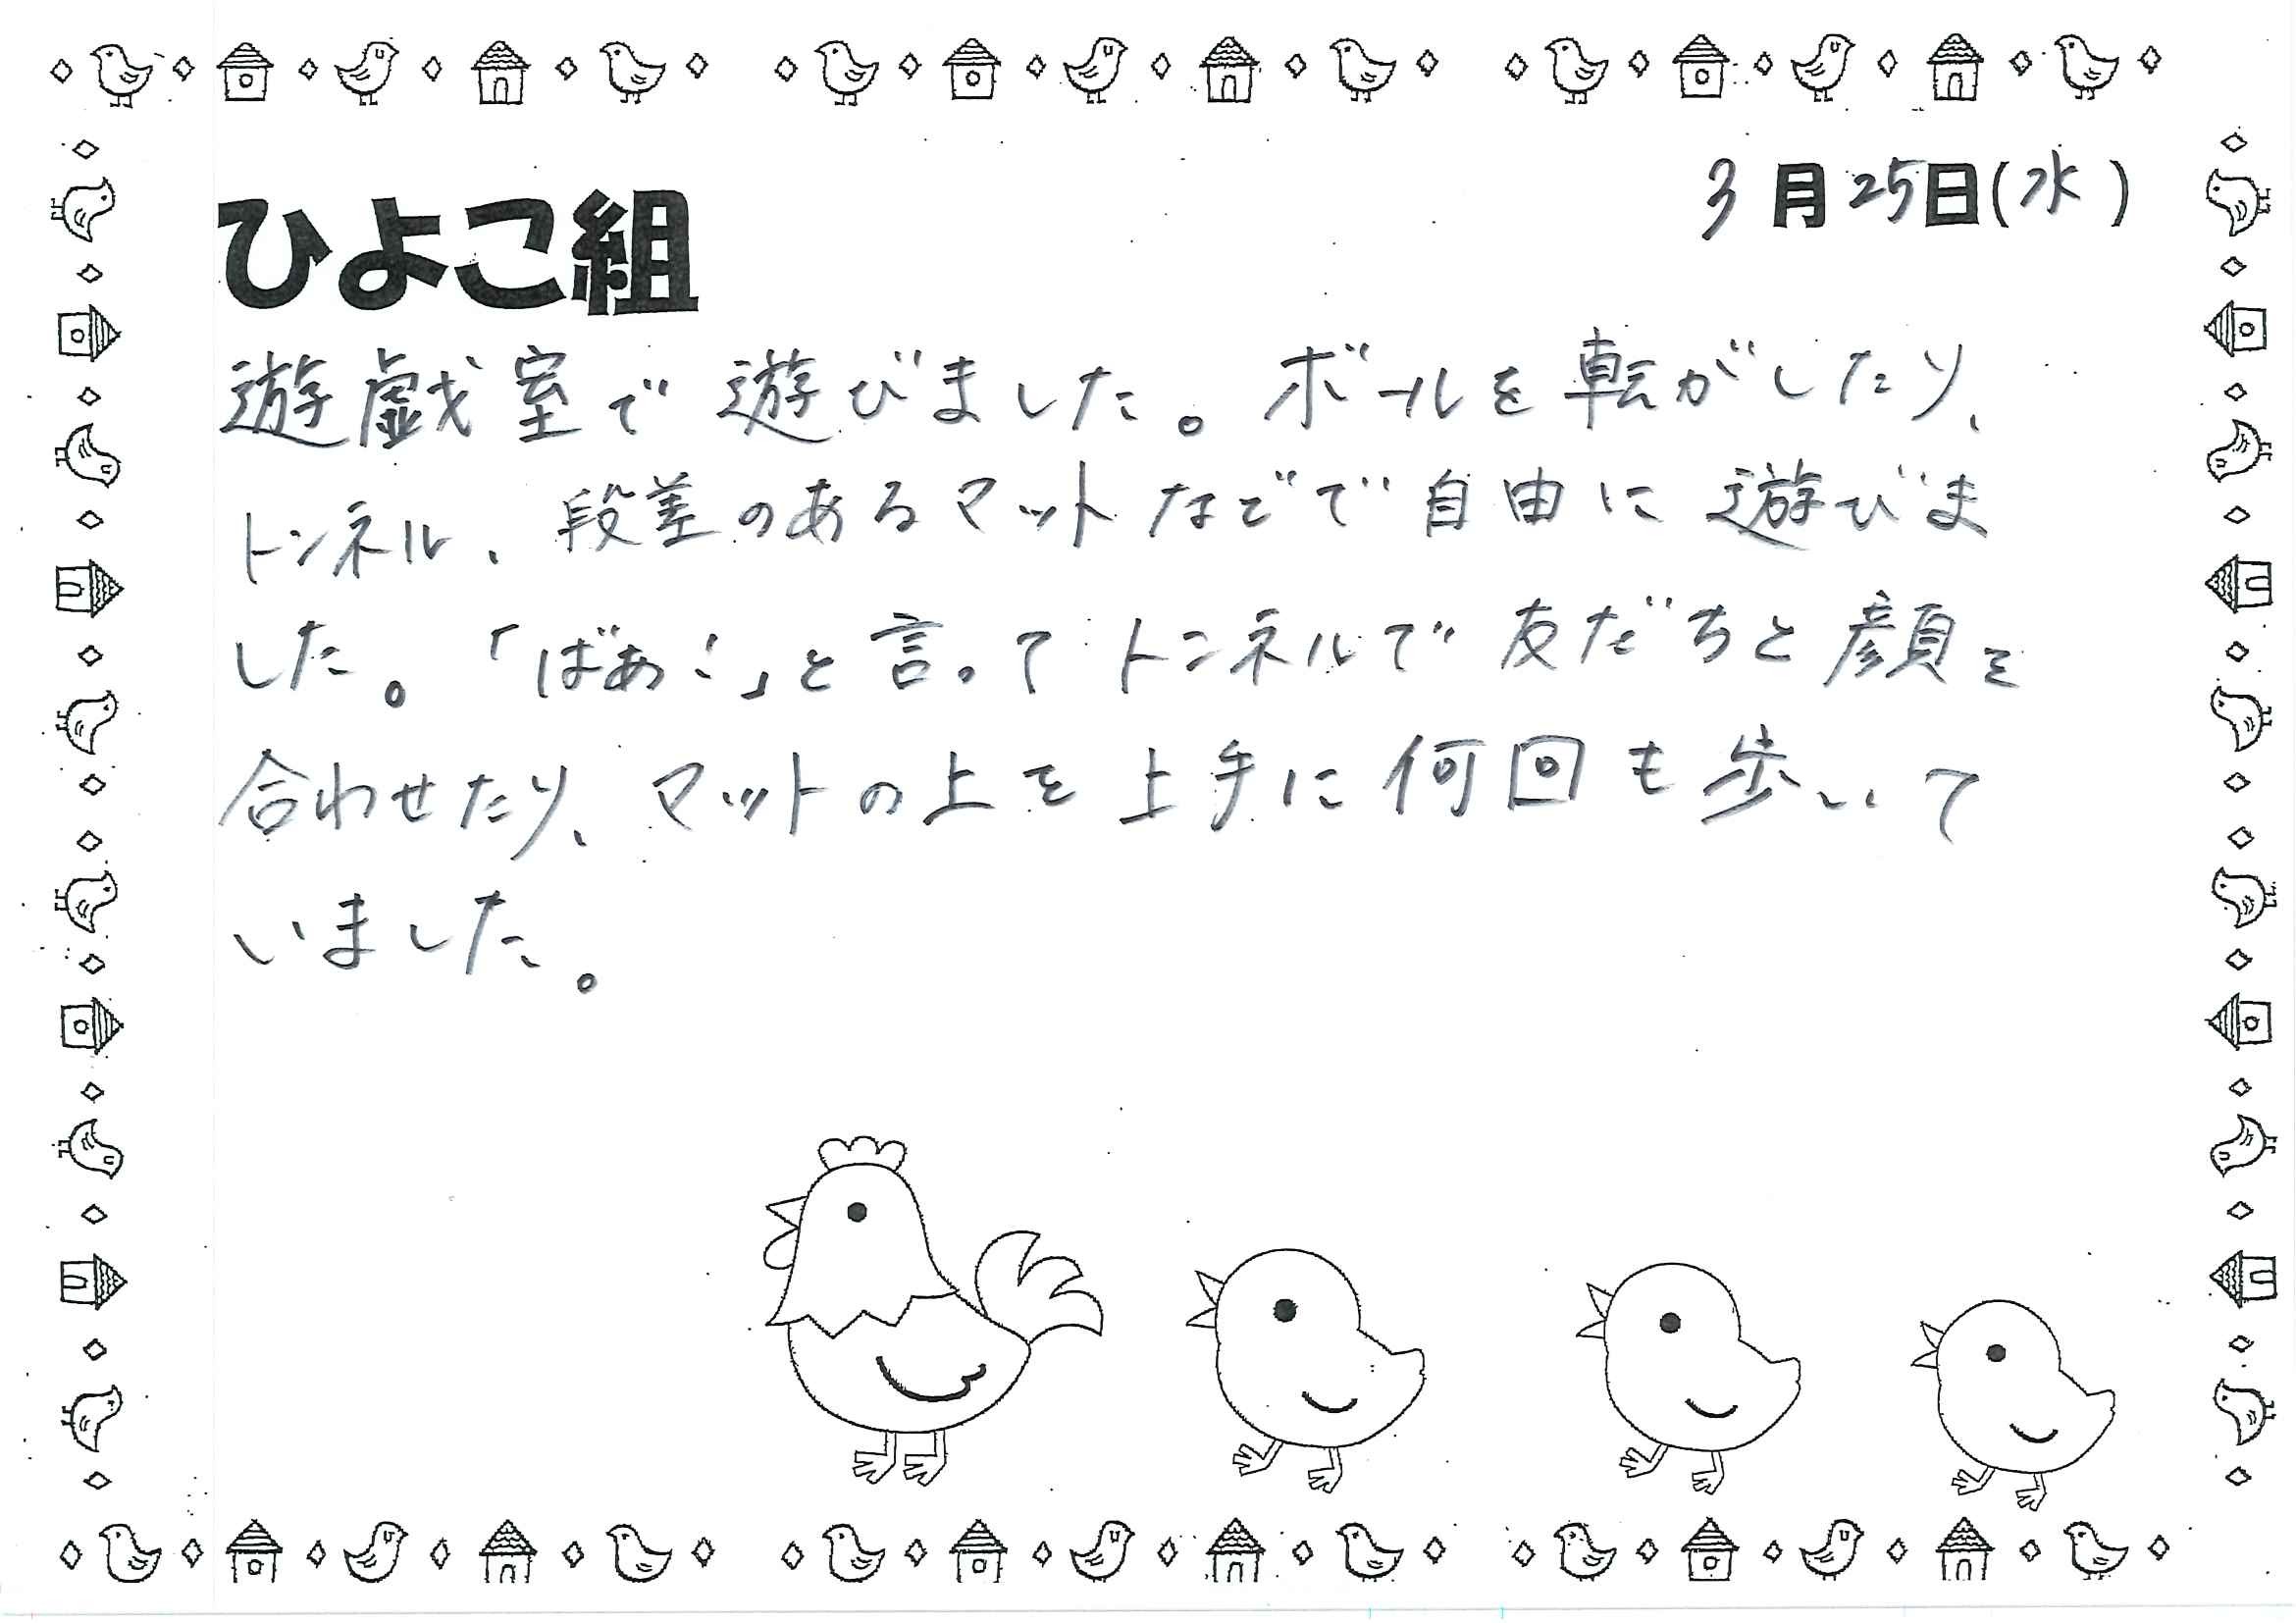 3月25日(水)
ひよこ組
遊戯室で遊びました。ボールを転がしたり、
トンネル、段差のあるマットなどで自由に遊びま
した。「ばあ!」と言ってトンネルで友だちと顔を
合わせたり、マットの上を上手に何回も歩いて
いました。